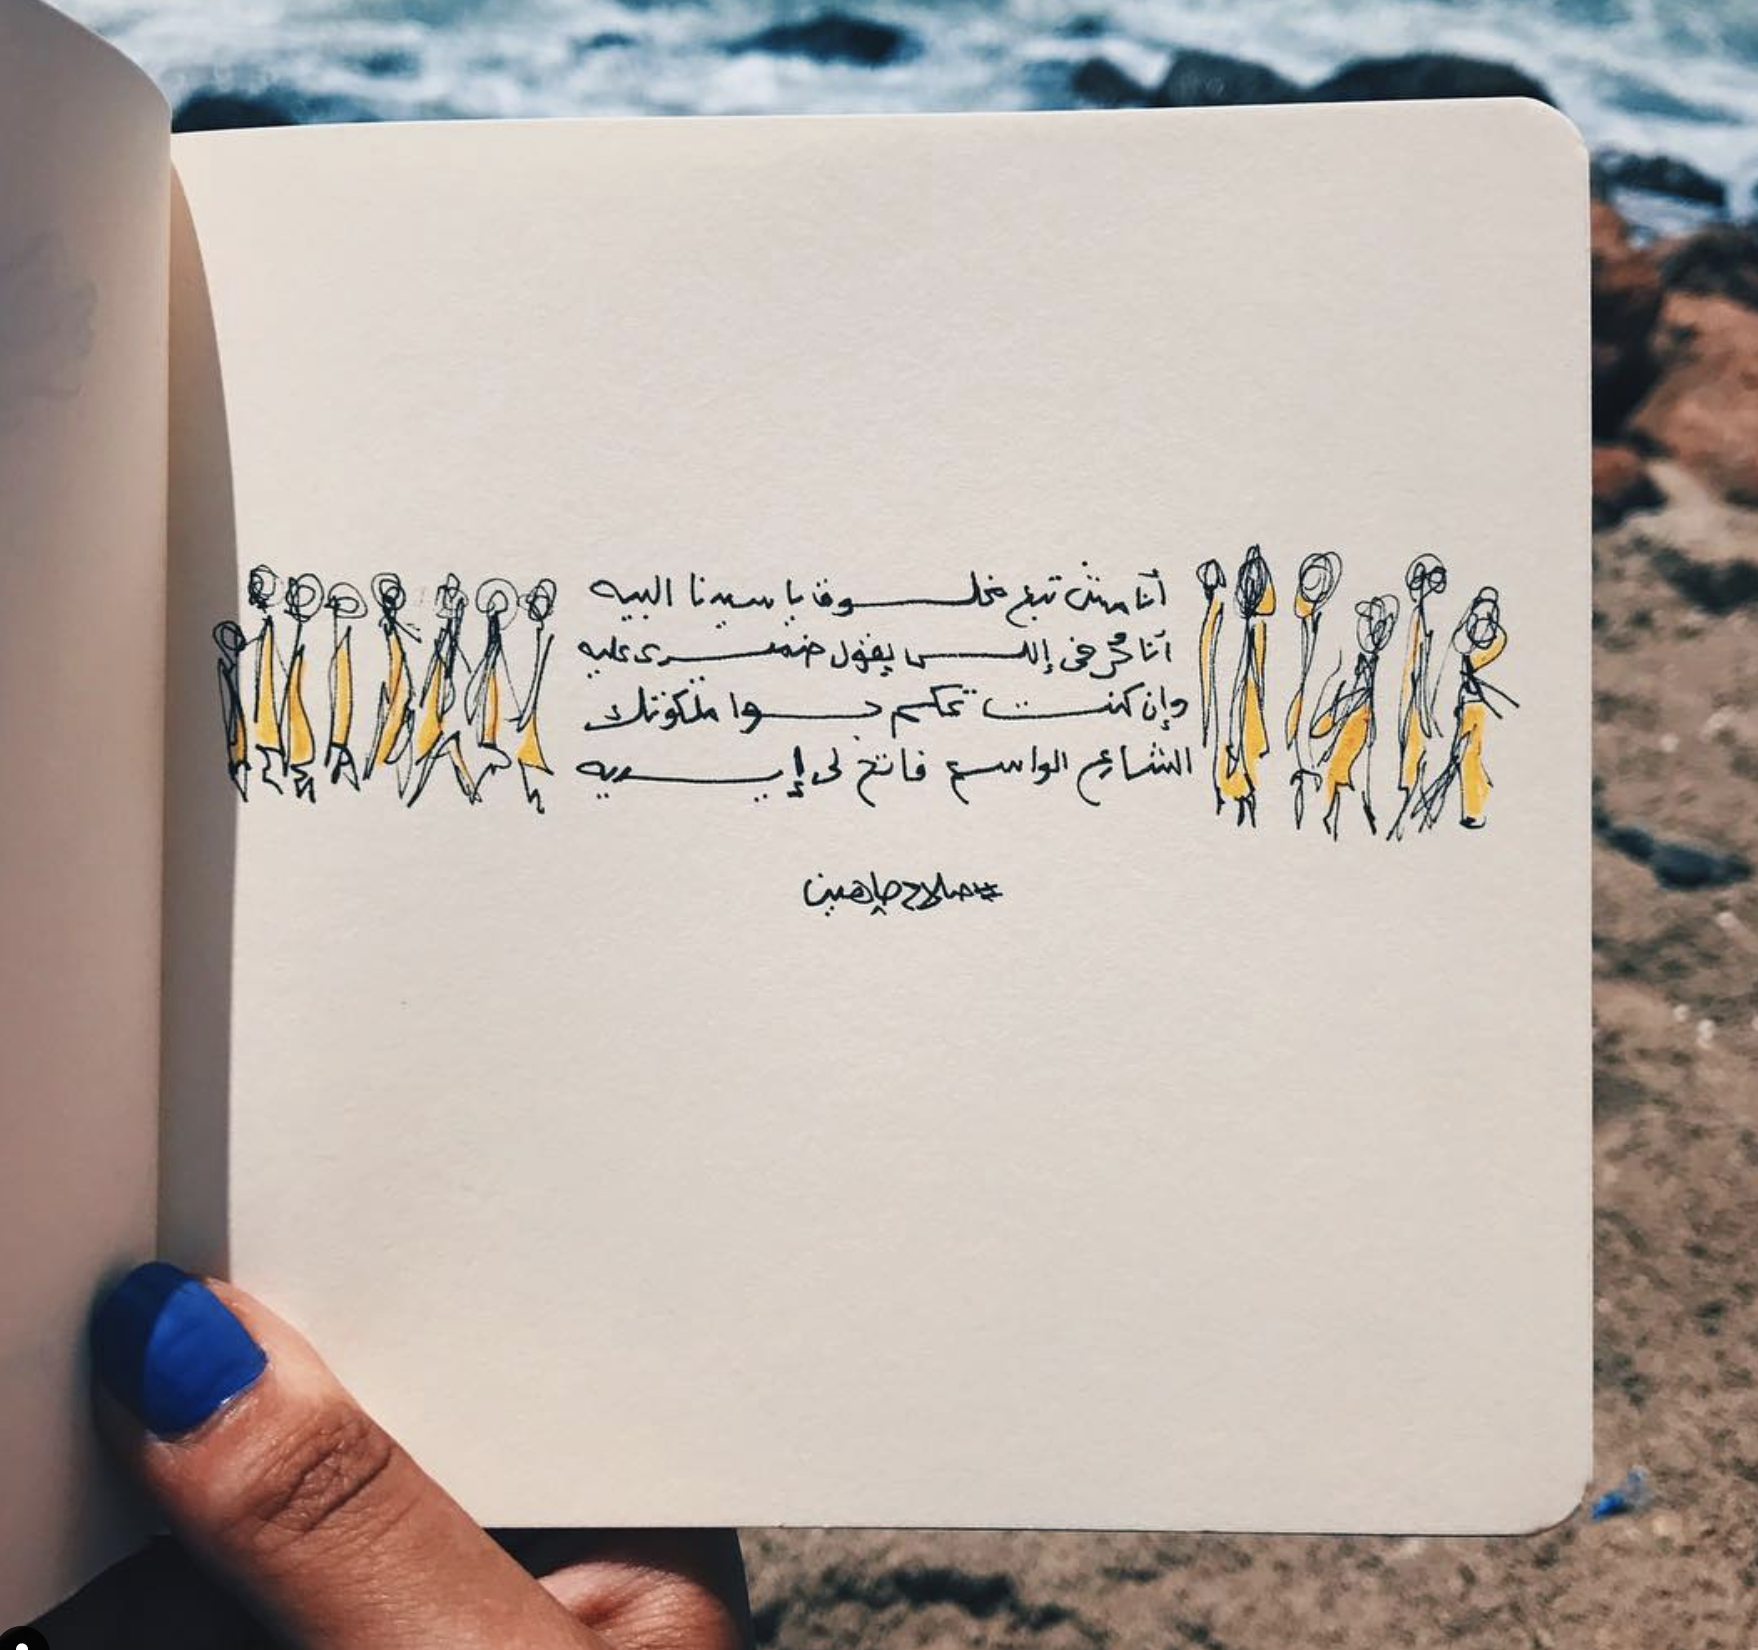 أنا مش تبع مخلوق يا سيدنا البيه
أنا حُر في إللي يقول ضميرى عليه
وإن كنت تحكم جوا ملكوتك
الشارع الواسع فاتح لى إيديه
#صلاح_چاهين